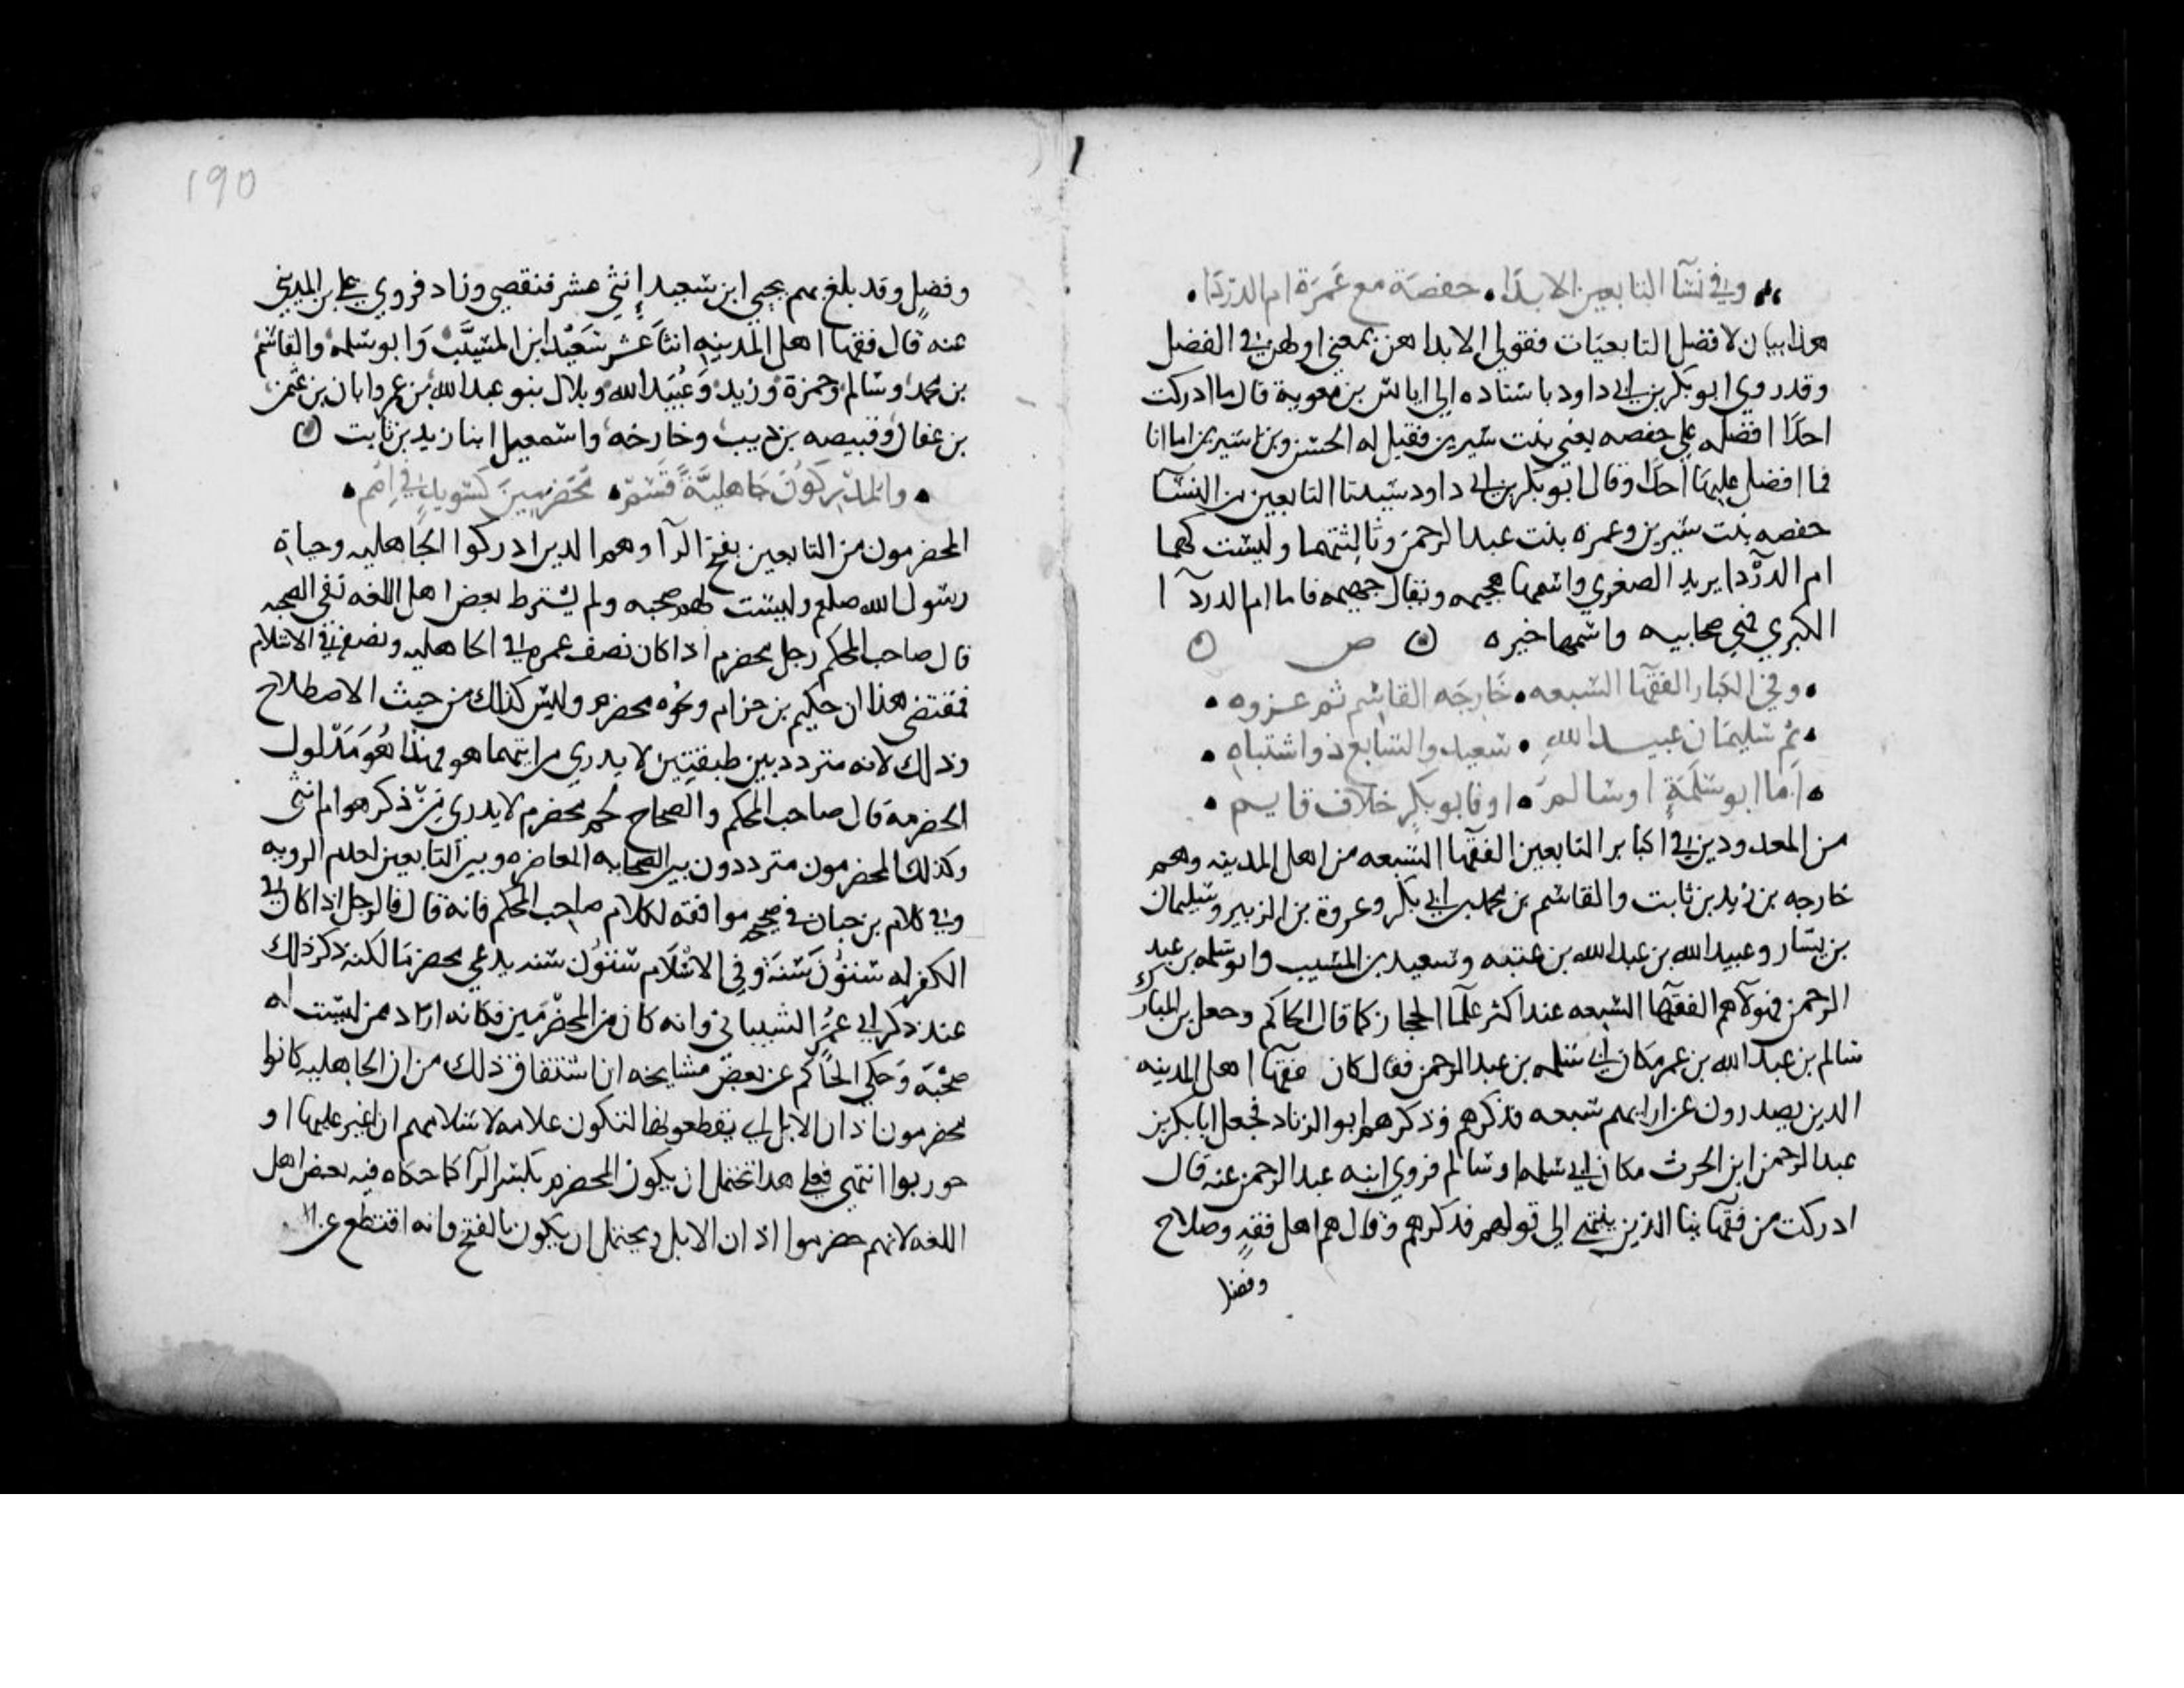 وفي نسا التابعين الابدا • حفصة مع عمرة ام الدردا •
هذا بيان لافضل التابعيات فقولي الابدا هن بمعني اولهن في الفضل
وقد روي ابو بكر بن ابي داود باسناده الي اياس بن معوية قال ما ادركت
احدًا افضله علي حفصه يعني بنت سيرين فقيل له الحسن وبن سيرين اما انا
فما افضل عليها احدًا وقال ابو بكر بن ابي داود سيدتا التابعين من النسا
حفصه بنت سيرين وعمره بنت عبد الرحمن وثالثتهما وليست كهما
ام الدردا يريد الصغري واسمها هجيمه ويقال جهيمه فاما ام الدردا
الكبري فهي صحابيه واسمها خيره ص
• وفي الكبار الفقها السبعه • خارجه القاسم ثم عروه •
• ثم سليمان عبيد الله • سعيد والسابع ذو اشتباه •
• اما ابو سلمة او سالم • او فابو بكر خلاف قايم •
من المعدودين في اكابر التابعين الفقها السبعه من اهل المدينه وهم
خارجه بن زيد بن ثابت والقاسم بن محمد بن ابي بكر وعروة بن الزبير وسليمان
بن يسار وعبيد الله بن عبد الله بن عتبه وسعيد بن المسيب وابو سلمه بن عبد
الرحمن فهولاهم الفقها السبعه عند اكثر علما الحجاز كما قال الحاكم وجعل بن المبارك
سالم بن عبد الله بن عمر مكان ابي سلمه بن عبد الرحمن فقال كان فقها اهل المدينه
الذين يصدرون عن رايهم سبعه فذكرهم وذكرهم ابو الزناد فجعل ابا بكر بن
عبد الرحمن ابن الحرث مكان ابي سلمه او سالم فروي ابنه عبد الرحمن عنه قال
ادركت من فقهائنا الذين ينتهي الي قولهم فذكرهم وقال هم اهل فقه وصلاح
وفضل
190
وفضل وقد بلغ بهم يحيي ابن سعيد إثني عشر فنقص وزاد فروي علي بن المديني
عنه قال فقها اهل المدينه اثنا عشر سعيد ابن المسيب وابو سلمه والقاسم
بن محمد وسالم وحمزة وزيد وعبيد الله وبلال بنو عبد الله بن عمر وابان بن عثمن
بن عفان وقبيصه بن ذويب وخارجه واسمعيل ابنا زيد بن ثابت
• والمدركون جاهلية فسم • مخضرمين كسويد في امم •
المخضرمون من التابعين بفتح الرآ وهم الذين ادركوا الجاهليه وحياة
رسول الله صلعم وليست لهم صحبه ولم يشترط بعض اهل اللغه نفي الصحبه
قال صاحب المحكم رجل مخضرم اذا كان نصف عمره في الجاهليه ونصفه في الاسلام
فمقتضي هذا ان حكيم بن حزام ونحوه مخضرم وليس كذلك من حيث الاصطلاح
وذلك لانه متردد بين طبقتين لا يدري من ايتهما هو فهذا هو مدلول
الخضرمة قال صاحب المحكم والصحاح لحم مخضرم لا يدري من ذكر هو ام انثي
وكذلك المخضرمون مترددون بين الصحابه المعاصره وبين التابعين لعدم الرويه
وفي كلام بن حبان في صحيحه موافقه لكلام صاحب المحكم فانه قال فالرجل اذا كان في
الكفر له ستون سنة وفي الاسلام ستون سنه يدعي مخضرما لكنه ذكر ذلك
عند ذكر ابي عمرو الشيباني وانه كان من المخضرمين فكانه اراد ممن ليست له
صحبة وحكي الحاكم عن بعض مشايخه ان اشتقاق ذلك من ان الجاهليه كانوا
يخضرمون اذان الابل اي يقطعونها لتكون علامه لاسلامهم ان اغير عليها او
حوربوا انتهي فعلي هذا تحتمل ان يكون المخضرم بكسر الرآ كما حكاه فيه بعض اهل
اللغه لانهم خضرموا اذان الابل ويحتمل ان يكون بالفتح وانه اقتطع عن